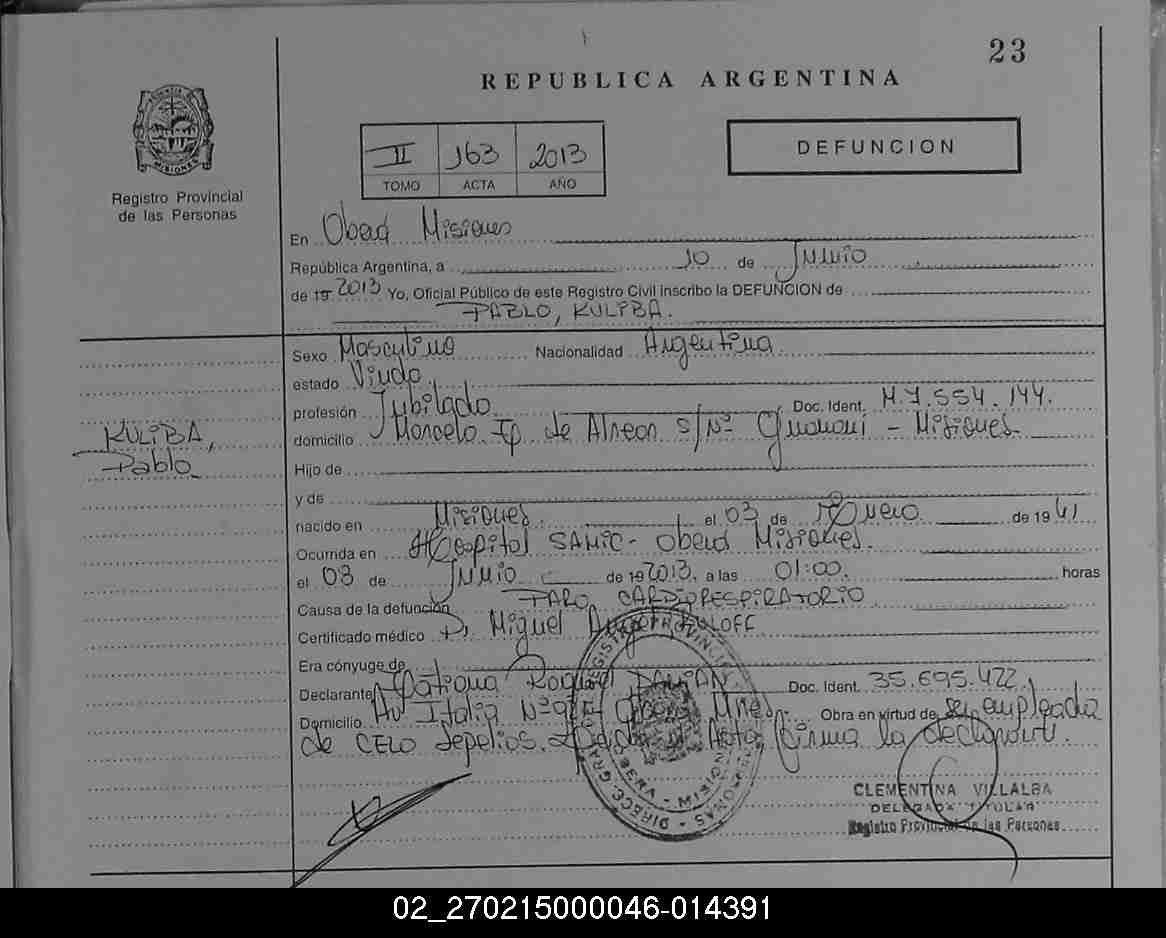 23
REPUBLICA ARGENTINA
Registro Provincial
de las Personas
II 163 2013
TOMO ACTA AÑO
DEFUNCION
En Oberá Misiones
República Argentina, a 10 de Junio
de 19 2013 Yo, Oficial Público de este Registro Civil inscribo la DEFUNCION de
PABLO, KULIBA.
KULIBA,
Pablo
Sexo Masculino Nacionalidad Argentina
estado Viudo
profesión Jubilado Doc. Ident. M 7.554.144.
domicilio Marcelo T. de Alvear S/Nº Guaraní - Misiones
Hijo de
y de
nacido en Misiones el 03 de Enero de 1941
Ocurrida en Hospital SAMIC - Oberá Misiones.
el 08 de Junio de 19 2013, a las 01:00. horas
Causa de la defunción PARO CARDIORESPIRATORIO
Certificado médico Dr Miguel Angel
Era cónyuge de
Declarante Tatiana Doc. Ident. 35.695.422
Domicilio Av Italia Nº Oberá Mnes. Obra en virtud de ser empleada
de CELO Sepelios. Acta firma la declarante.
CLEMENTINA VILLALBA
DELEGADA TITULAR
Registro Provincial de las Personas
02_270215000046-014391